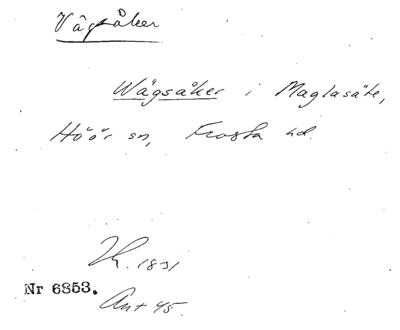 Vägsåker
Wägsåker i Maglasäte,
Höör sn, Frosta hd.
1831
Nr 6853.
Ant 45.